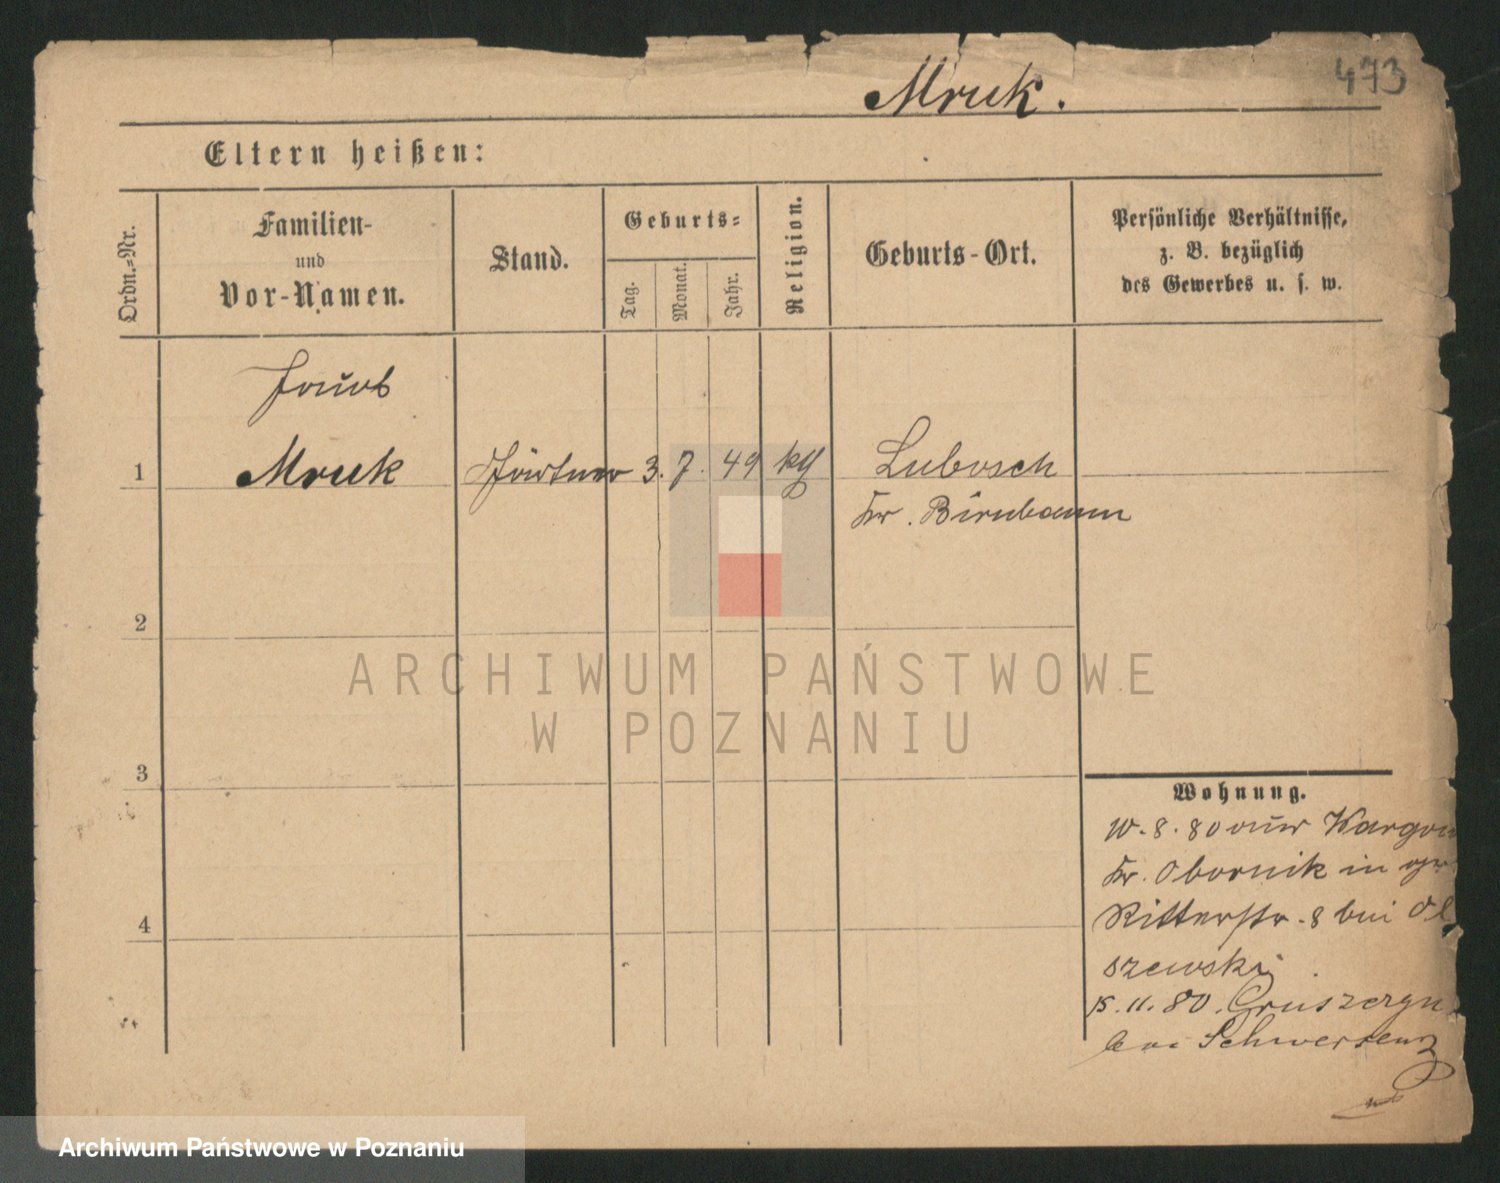 473
Mruk.
Eltern heißen:
Ordn.=Nr.
Familien-
und
Vor-Namen.
Stand.
Geburts=
Tag.
Monat.
Jahr.
Religion.
Geburts-Ort.
Persönliche Verhältnisse,
z. B. bezüglich
des Gewerbes u. s. w.
Jacob
1 Mruk Gärtner 3. 7. 49 kth Lubosch
Kr. Birnbaum
2
3
4
Wohnung.
10. 8. 80 aus
Kr. Obornik in
Ritterstr. 8 bei Ol
szewski
15. 11. 80.
Schwersenz
ARCHIWUM PAŃSTWOWE
W POZNANIU
Archiwum Państwowe w Poznaniu